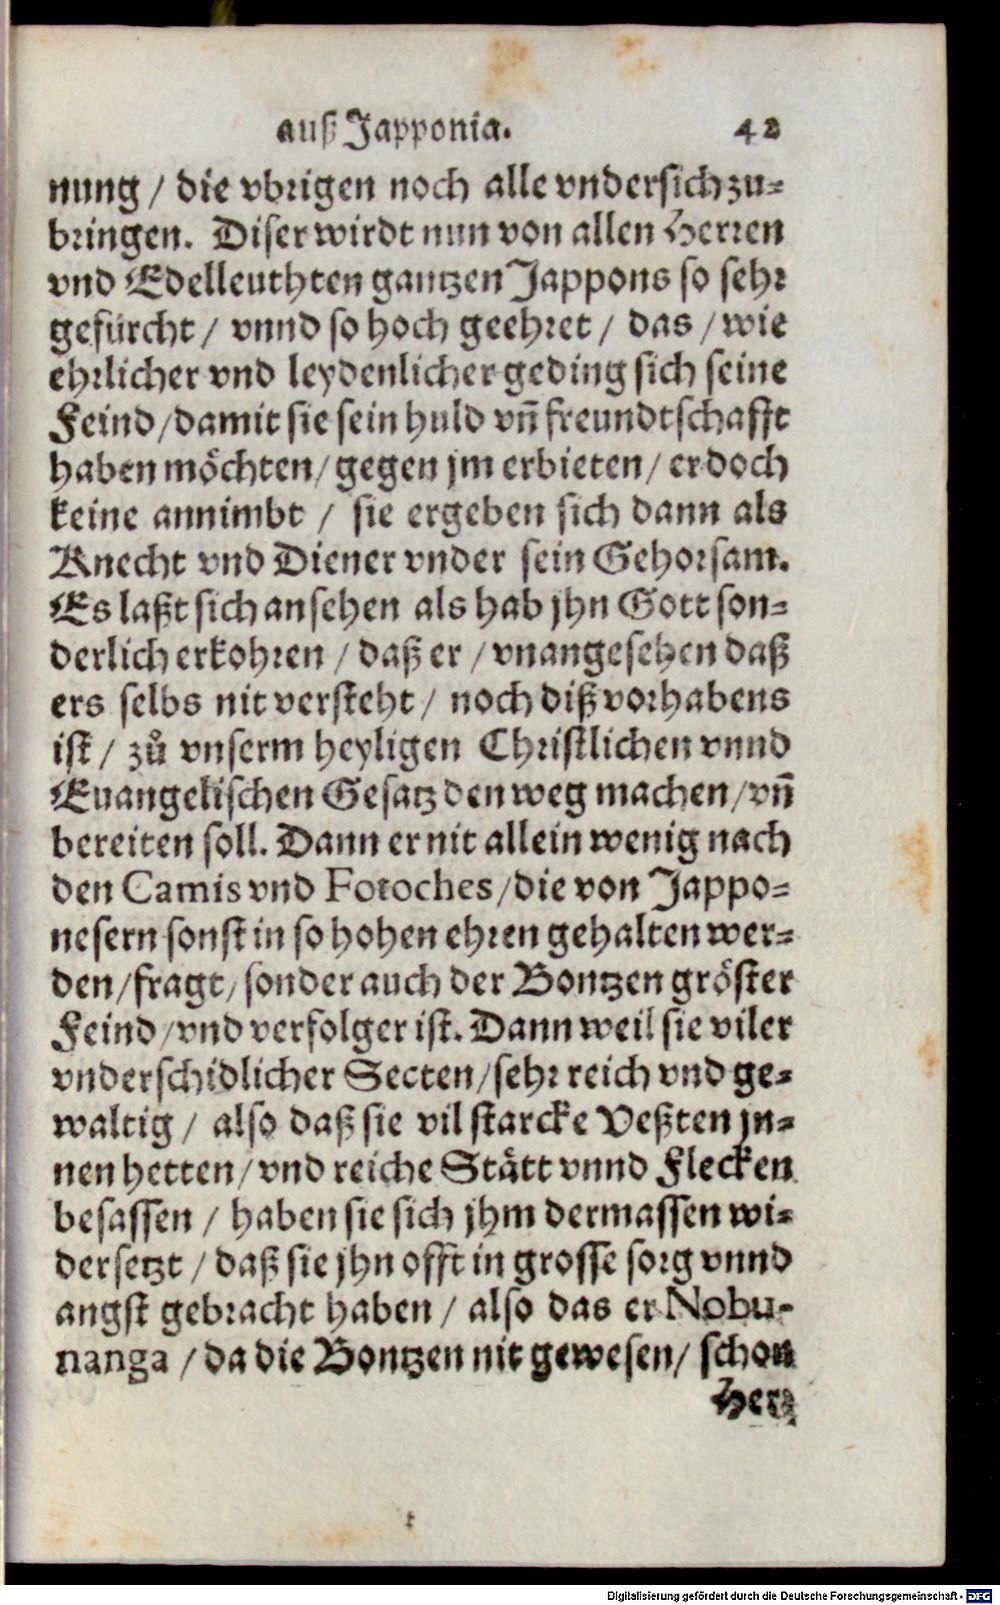 auß Japponia. 42
nung / die vbrigen noch alle vndersich zu=
bringen. Diser wirdt nun von allen Herren
vnd Edelleuthten gantzen Jappons so sehr
gefürcht / vnnd so hoch geehret / das / wie
ehrlicher vnd leydenlicher geding sich seine
Feind / damit sie sein huld vñ freundtschafft
haben möchten / gegen jm erbieten / er doch
keine annimbt / sie ergeben sich dann als
Knecht vnd Diener vnder sein Gehorsam.
Es laßt sich ansehen als hab jhn Gott son=
derlich erkohren / daß er / vnangesehen daß
ers selbs nit versteht / noch diß vorhabens
ist / zů vnserm heyligen Christlichen vnnd
Euangelischen Gesatz den weg machen / vñ
bereiten soll. Dann er nit allein wenig nach
den Camis vnd Fotoches / die von Jappo=
nesern sonst in so hohen ehren gehalten wer=
den / fragt / sonder auch der Bontzen gröster
Feind / vnd verfolger ist. Dann weil sie viler
vnderschidlicher Secten / sehr reich vnd ge=
waltig / also daß sie vil starcke Veßten jn=
nen hetten / vnd reiche Stätt vnnd Flecken
besassen / haben sie sich jhm dermassen wi=
dersetzt / daß sie jhn offt in grosse sorg vnnd
angst gebracht haben / also das er Nobu-
nanga / da die Bontzen nit gewesen / schon
Herr
Digitalisierung gefördert durch die Deutsche Forschungsgemeinschaft - DFG